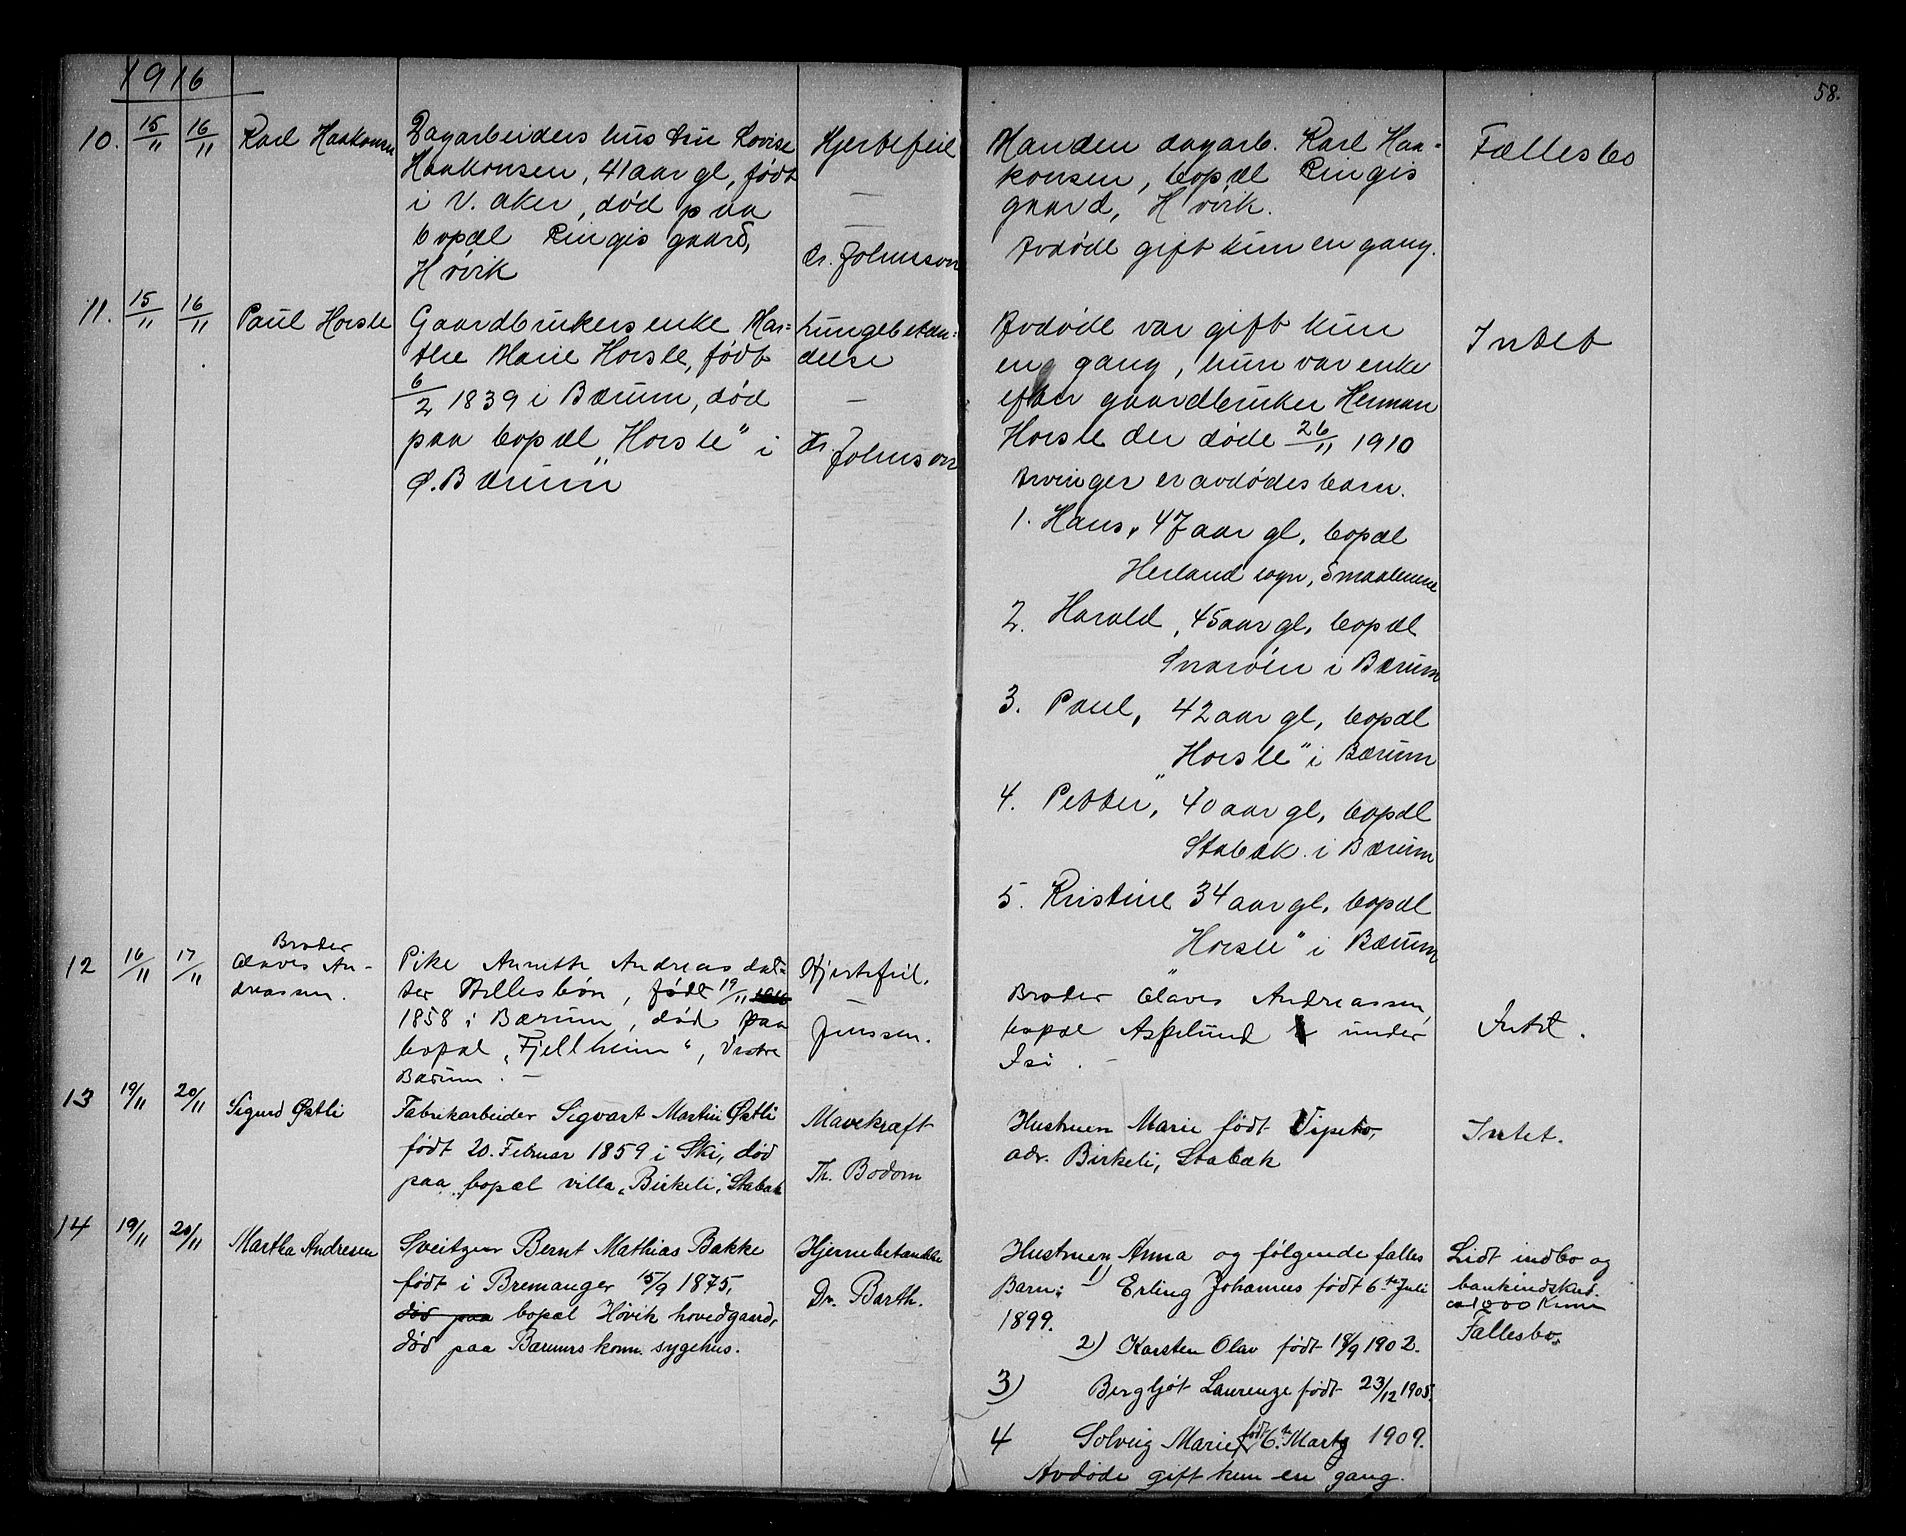 1916
58.
10. 15/11 16/11 Karl Haakonsen
Dagarbeiders hustru Lovise
Haakonsen, 41 aar gl, født
i V. aker, død paa
bopæl Ringis gaard,
Høvik
Hjertefeil
—
—
Dr. Johnson
Manden dagarb. Karl Haa-
konsen, bopæl Ringis
gaard, Høvik.
Avdøde gift kun en gang.
Fællesbo
11. 15/11 16/11 Paul Horsle
Gaardbrukersenke Mar-
the Marie Horsle, født
6/2 1839 i Bærum, død
paa bopæl „Horsle" i
Ø. Bærum
Lungebetæn-
delse
—
Dr. Johnson
Avdøde var gift kun
en gang, hun var enke
efter gaardbruker Herman
Horsle der døde 26/11 1910
Arvinger er avdødes barn.
1. Hans, 47 aar gl, bopæl
Herland sogn, Smaalenene
2. Harald, 45 aar gl, bopæl
Snarøen i Bærum
3. Paul, 42 aar gl, bopæl
„Horsle" i Bærum
4. Petter, 40 aar gl, bopæl
Stabæk i Bærum
5. Kristine 34 aar gl, bopæl
„Horsle" i Bærum
Intet
12 16/11 17/11
Broder
Olaves An-
dreassen.
Pike Annette Andreasdat-
ter, født 19/11
1858 i Bærum, død paa
bopæl „Fjellheim", Vestre
Bærum. —
Hjertefeil.
—
Jenssen.
Broder Olaves Andreassen,
bopæl Asplund under
Isi.
Intet.
13 19/11 20/11 Sigurd Østli
Fabrikarbeider Sigvart Martin Østli
født 20. Februar 1859 i Ski, død
paa bopæl villa „Birkeli", Stabæk
Mavekræft
Th. Bodom
Hustruen Marie født
adr. Birkeli, Stabæk
Intet.
14 19/11 20/11 Martha Andresen
Sveitzer Bernt Mathias Bakke
født i Bremanger 15/9 1875,
død paa bopæl Høvik hovedgaard,
død paa Bærums kom. sygehus.
Hjernebetændelse
Dr. Barth.
Hustruen Anna og følgende fælles
Barn: 1) Erling Johannes født 6te Juli
1899.
2) Karsten Olav født 18/9 1902.
3) Bergljot Laurenze født 23/12 1905.
4 Solveig Marie født 6te Marts 1909.
Avdøde gift kun en gang.
Lidt indbo og
bankindskud.
ca 1000 Kroner
Fællesbo.